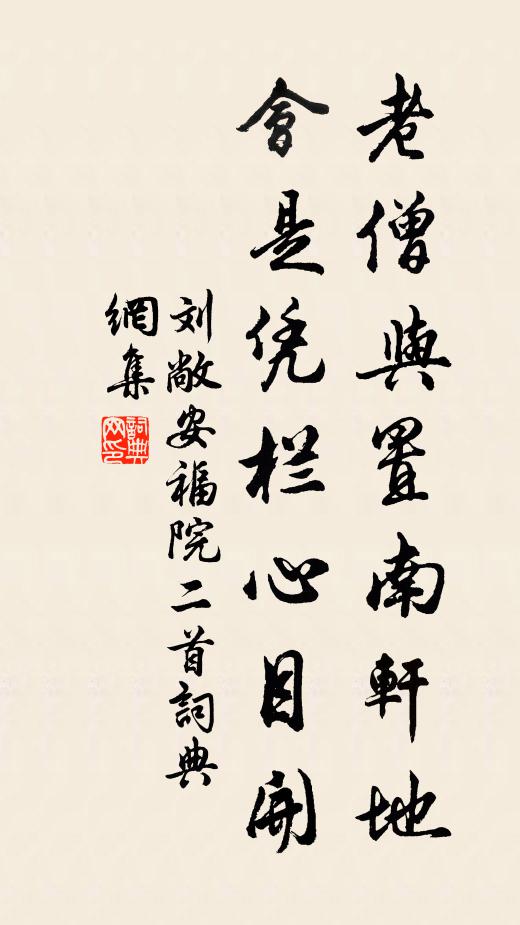 老僧與置南軒地
會是凭栏心目開
刘敞安福院二首詞典
網集
詞典
网印